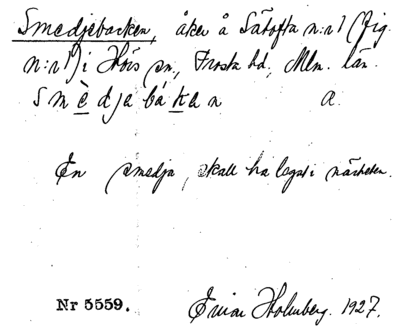 Smedjebacken, åker å Sätofta n:r 1 (fig.
n:r 1) i Hörs sn, Frosta hd, Mlm. län.
smèdjebákan a.
En smedja, skall ha legat i närheten.
Nr 5559. Einar Holmberg. 1927.